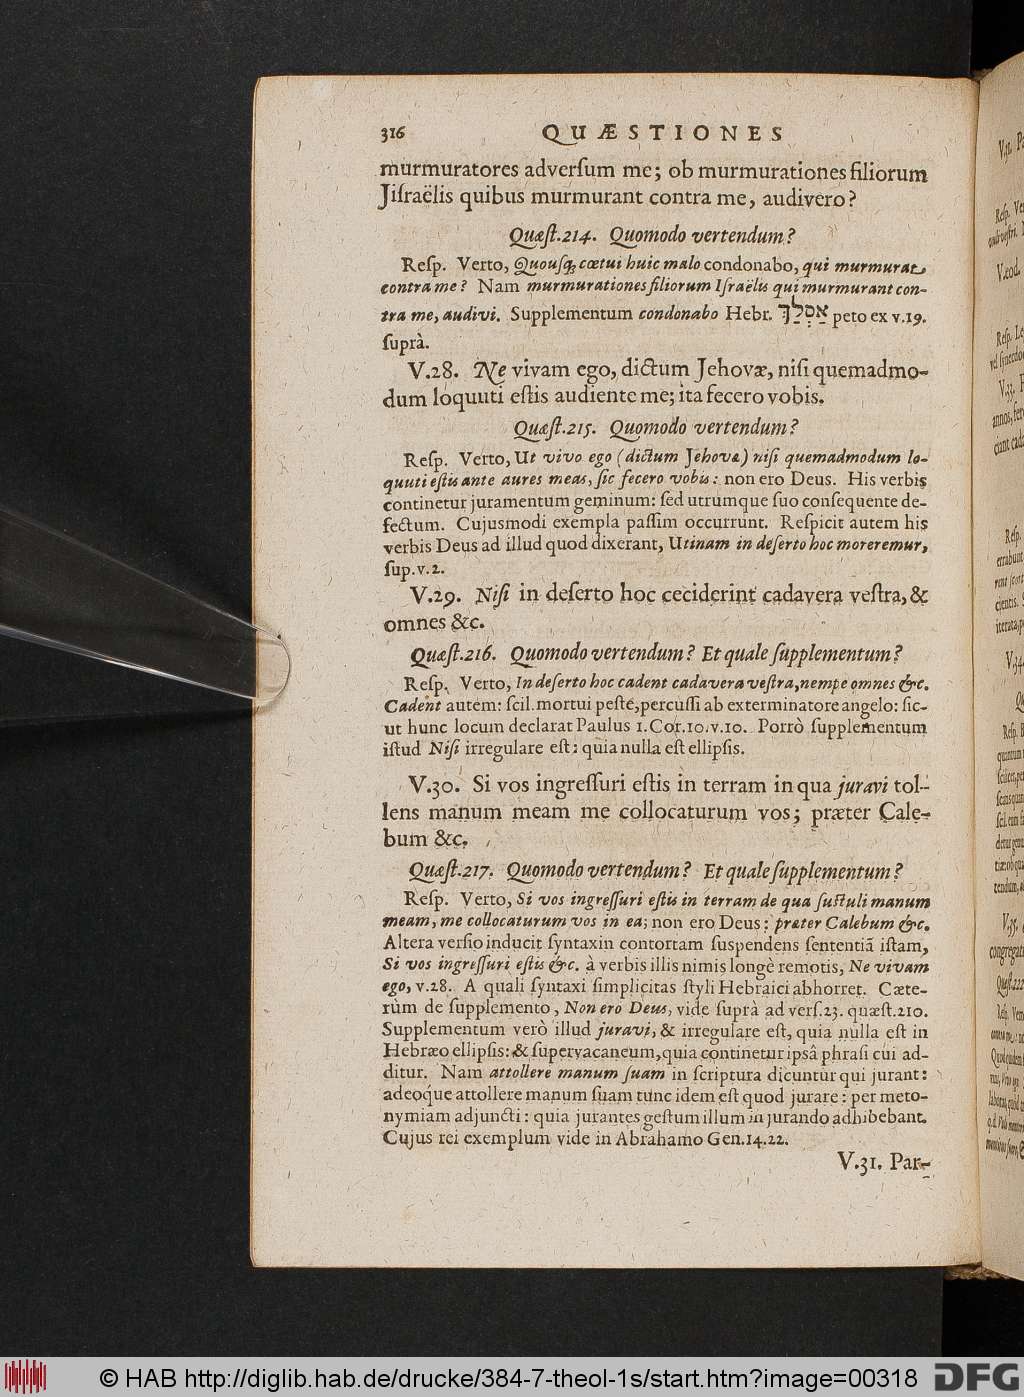 316 QUÆSTIONES
murmuratores adverſum me; ob murmurationes filiorum
Jiſraëlis quibus murmurant contra me, audivero?
Quæſt.214. Quomodo vertendum?
Reſp. Verto, Quouſq; cœtui huic malo condonabo, qui murmurat
contra me? Nam murmurationes filiorum Iſraëlis qui murmurant con-
tra me, audivi. Supplementum condonabo Hebr. אֶסְלַח peto ex v.19.
ſuprà.
V.28. Ne vivam ego, dictum Jehovæ, niſi quemadmo-
dum loquuti eſtis audiente me; ita fecero vobis.
Quæſt.215. Quomodo vertendum?
Reſp. Verto, Ut vivo ego (dictum Jehovæ) niſi quemadmodum lo-
quuti eſtis ante aures meas, ſic fecero vobis: non ero Deus. His verbis
continetur juramentum geminum: ſed utrumque ſuo conſequente de-
fectum. Cujuſmodi exempla paſſim occurrunt. Reſpicit autem his
verbis Deus ad illud quod dixerant, Utinam in deſerto hoc moreremur,
ſup.v.2.
V.29. Niſi in deſerto hoc ceciderint cadavera veſtra, &
omnes &c.
Quæſt.216. Quomodo vertendum? Et quale ſupplementum?
Reſp. Verto, In deſerto hoc cadent cadavera veſtra, nempe omnes &c.
Cadent autem: ſcil. mortui peſte, percuſſi ab exterminatore angelo: ſic-
ut hunc locum declarat Paulus 1.Cor.10.v.10. Porrò ſupplementum
iſtud Niſi irregulare eſt: quia nulla eſt ellipſis.
V.30. Si vos ingreſſuri eſtis in terram in qua juravi tol-
lens manum meam me collocaturum vos; præter Cale-
bum &c.
Quæſt.217. Quomodo vertendum? Et quale ſupplementum?
Reſp. Verto, Si vos ingreſſuri eſtis in terram de qua ſuſtuli manum
meam, me collocaturum vos in ea; non ero Deus: præter Calebum &c.
Altera verſio inducit ſyntaxin contortam ſuspendens ſententiã iſtam,
Si vos ingreſſuri eſtis &c. à verbis illis nimis longè remotis, Ne vivam
ego, v.28. A quali ſyntaxi ſimplicitas ſtyli Hebraici abhorret. Cæte-
rùm de ſupplemento, Non ero Deus, vide ſuprà ad verſ.23. quæſt.210.
Supplementum verò illud juravi, & irregulare eſt, quia nulla eſt in
Hebræo ellipſis: & ſupervacaneum, quia continetur ipsâ phraſi cui ad-
ditur. Nam attollere manum ſuam in ſcriptura dicuntur qui jurant:
adeoque attollere manum ſuam tunc idem eſt quod jurare: per meto-
nymiam adjuncti: quia jurantes geſtum illum in jurando adhibebant.
Cujus rei exemplum vide in Abrahamo Gen.14.22.
V.31. Par-
© HAB http://diglib.hab.de/drucke/384-7-theol-1s/start.htm?image=00318 DFG